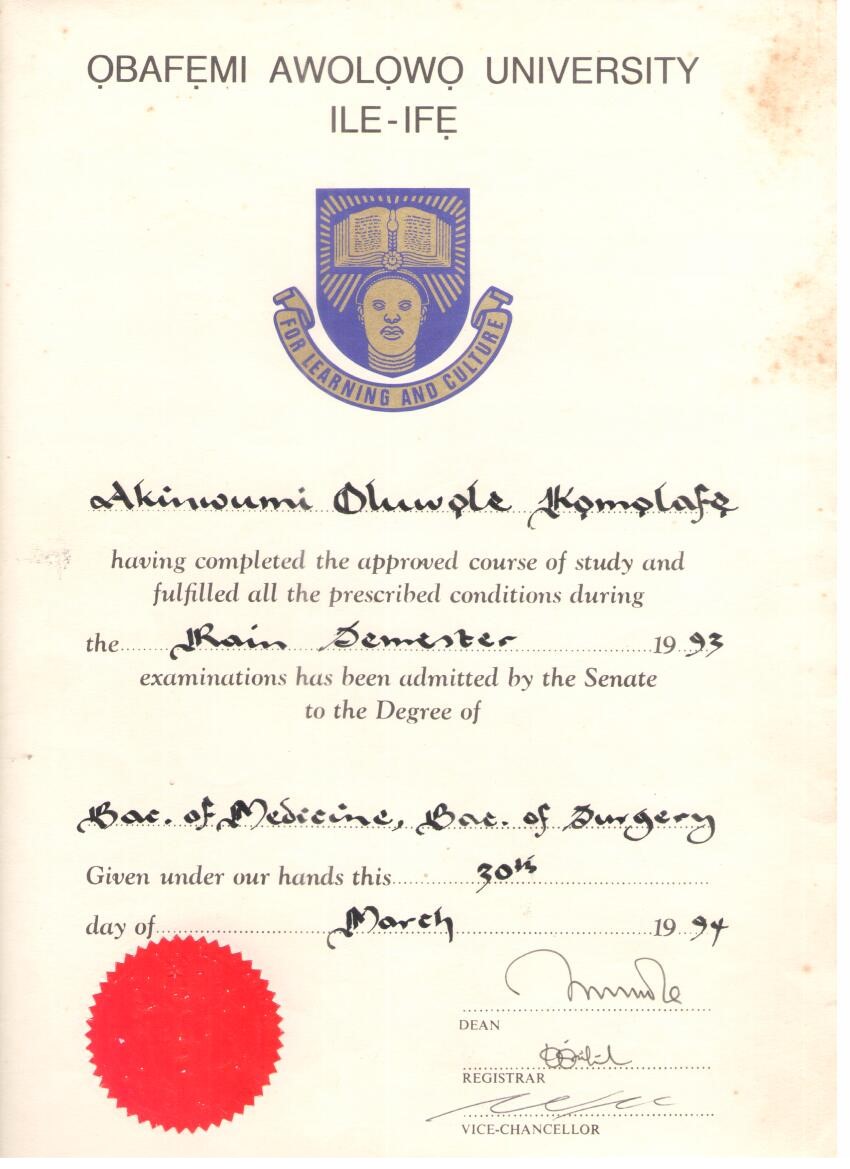 ỌBAFẸMI AWOLỌWỌ UNIVERSITY
ILE-IFẸ
FOR LEARNING AND CULTURE
Akinwumi Oluwọle Kọmọlafẹ
having completed the approved course of study and
fulfilled all the prescribed conditions during
the Rain Semester 19 93
examinations has been admitted by the Senate
to the Degree of
Bac. of Medicine, Bac. of Surgery
Given under our hands this 30th
day of March 19 94
DEAN
REGISTRAR
VICE-CHANCELLOR